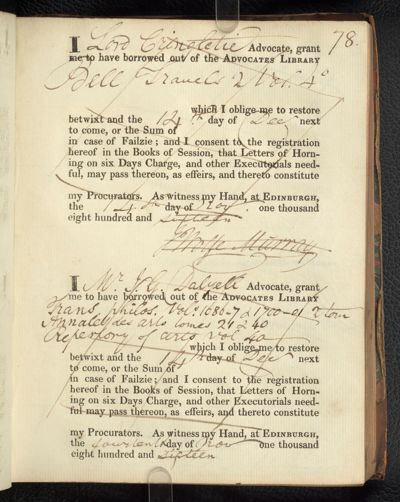 78.
I Lord Cringletie Advocate, grant
me to have borrowed out of the ADVOCATES LIBRARY
Bell Travels 2 Vol. 4o
which I oblige me to restore
betwixt and the 14th day of Decr next
to come, or the Sum of
in case of Failzie; and I consent to the registration
hereof in the Books of Session, that Letters of Horn-
ing on six Days Charge, and other Executorials need-
ful, may pass thereon, as effeirs, and thereto constitute
my Procurators. As witness my Hand, at EDINBURGH,
the 14th day of Nov. one thousand
eight hundred and sixteen
Murray
I Mr J. G. Dalyell Advocate, grant
me to have borrowed out of the ADVOCATES LIBRARY
Trans. philos. Vol. 1686-7 & 1700-01 2 tom
Annales des arts tomes 21 & 40
Repertory of arts vol 40
which I oblige me to restore
betwixt and the 14th day of Decr next
to come, or the Sum of
in case of Failzie; and I consent to the registration
hereof in the Books of Session, that Letters of Horn-
ing on six Days Charge, and other Executorials need-
ful may pass thereon, as effeirs, and thereto constitute
my Procurators. As witness my Hand, at EDINBURGH,
the fourteenth day of Nov one thousand
eight hundred and sixteen